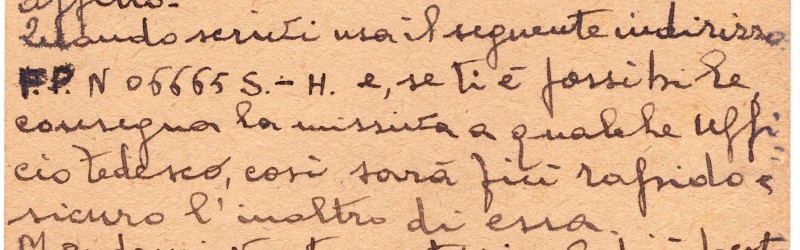 affitto.
Quando scrivi usa il seguente indirizzo
F.P. N 06665 S.-H. e, se ti è possibile,
consegna la missiva a qualche Uffi
cio tedesco, così sarà più rapido e
sicuro l'inoltro di essa.